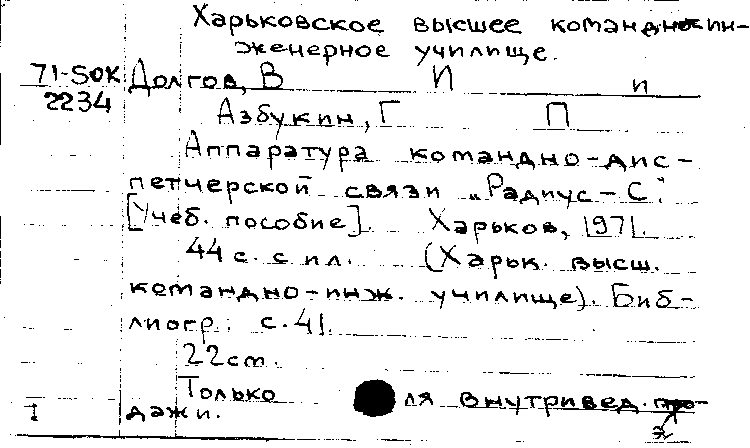 Харьковское высшее командно-ин-
женерное училище.
71-50К Долгов, В И и
2234 Азбукин, Г П
Аппаратура командно-дис-
петчерской связи „Радиус-С".
[Учеб. пособие]. Харьков, 1971.
44 с. с ил. (Харьк. высш.
командно-инж. училище). Биб-
лиогр.: с. 41.
22 см.
Только ля внутривед.
I дажи.